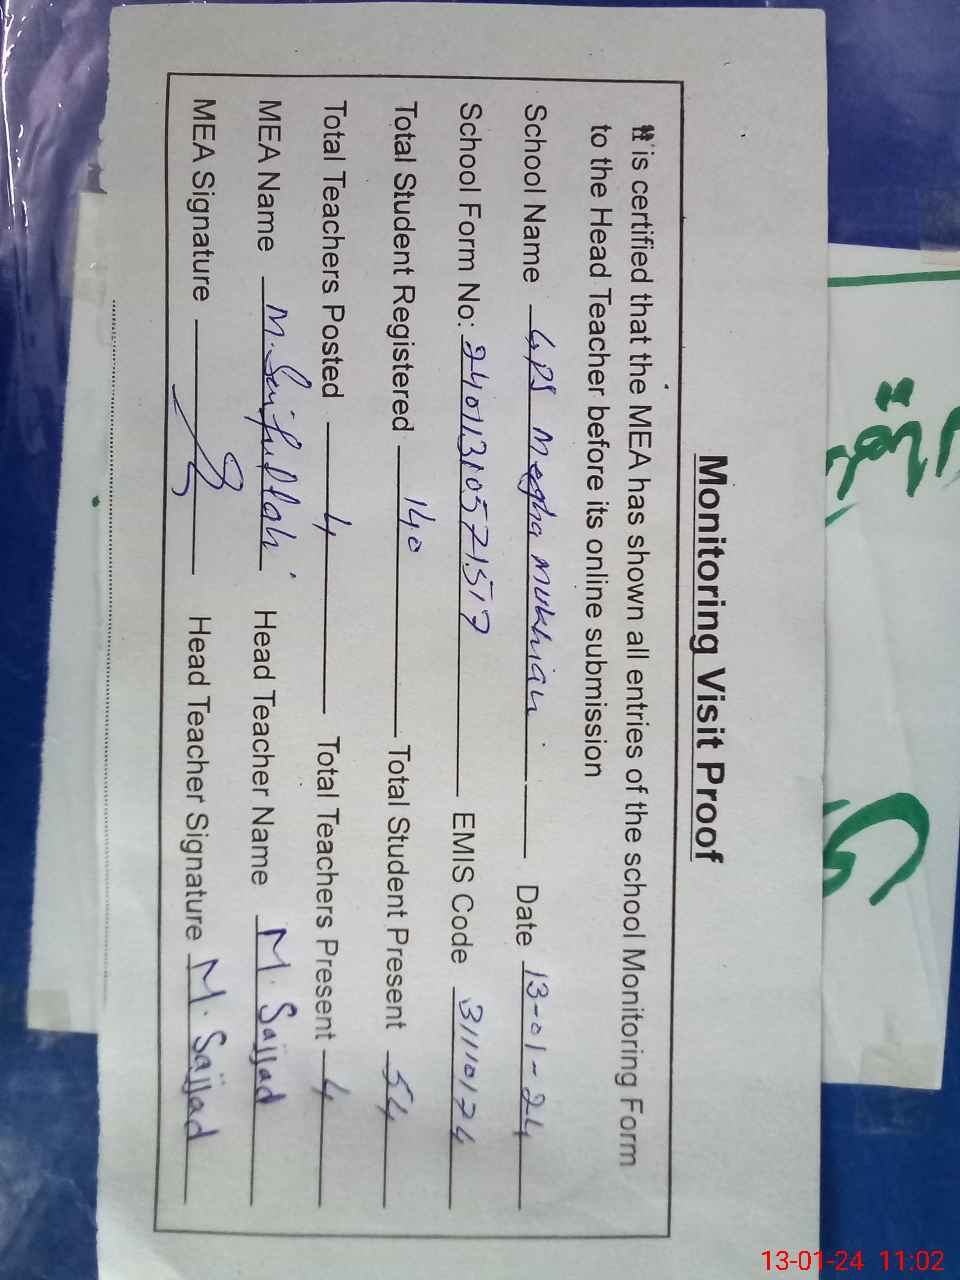 Monitoring Visit Proof
It is certified that the MEA has shown all entries of the school Monitoring Form
to the Head Teacher before its online submission
School Name GPS Megha Mukhian Date 13-01-24
School Form No: 24011310571517 EMIS Code 31110174
Total Student Registered 140 Total Student Present 54
Total Teachers Posted 4 Total Teachers Present 4
MEA Name M. Saifullah Head Teacher Name M. Sajjad
MEA Signature Head Teacher Signature M. Sajjad
13-01-24 11:02